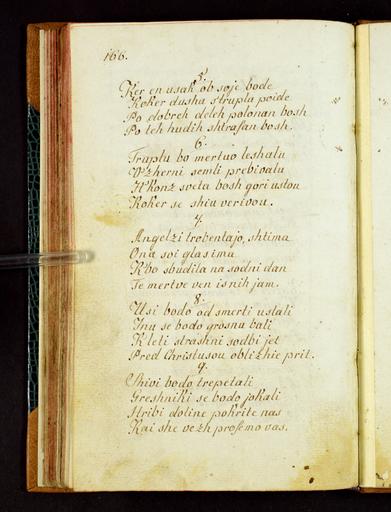 166.
5.
Ker en usak ob soje bode
Koker dusha s'trupla poide
Po dobreh deleh polonan bosh
Po teh hudih shtrafan bosh.
6.
Truplu bo mertuo leshalu
V'zherni semli prebivalu
H'konz sveta bosh gori ustou
Koker se shiu verivou.
7.
Angelzi trobentajo, shtima
Ona svi glas ima
K'bo sbudila na sodni dan
Te mertve ven is nih jam.
8.
Usi bodo od smerti ustali
Inu se bodo grosnu bali
K leti strashni sodbi jet
Pred Christusou oblizhie prit.
9.
Shivi bodo trepetali
Greshniki se bodo jokali
Hribi doline pokrite nas
Kai she vezh prosemo vas.